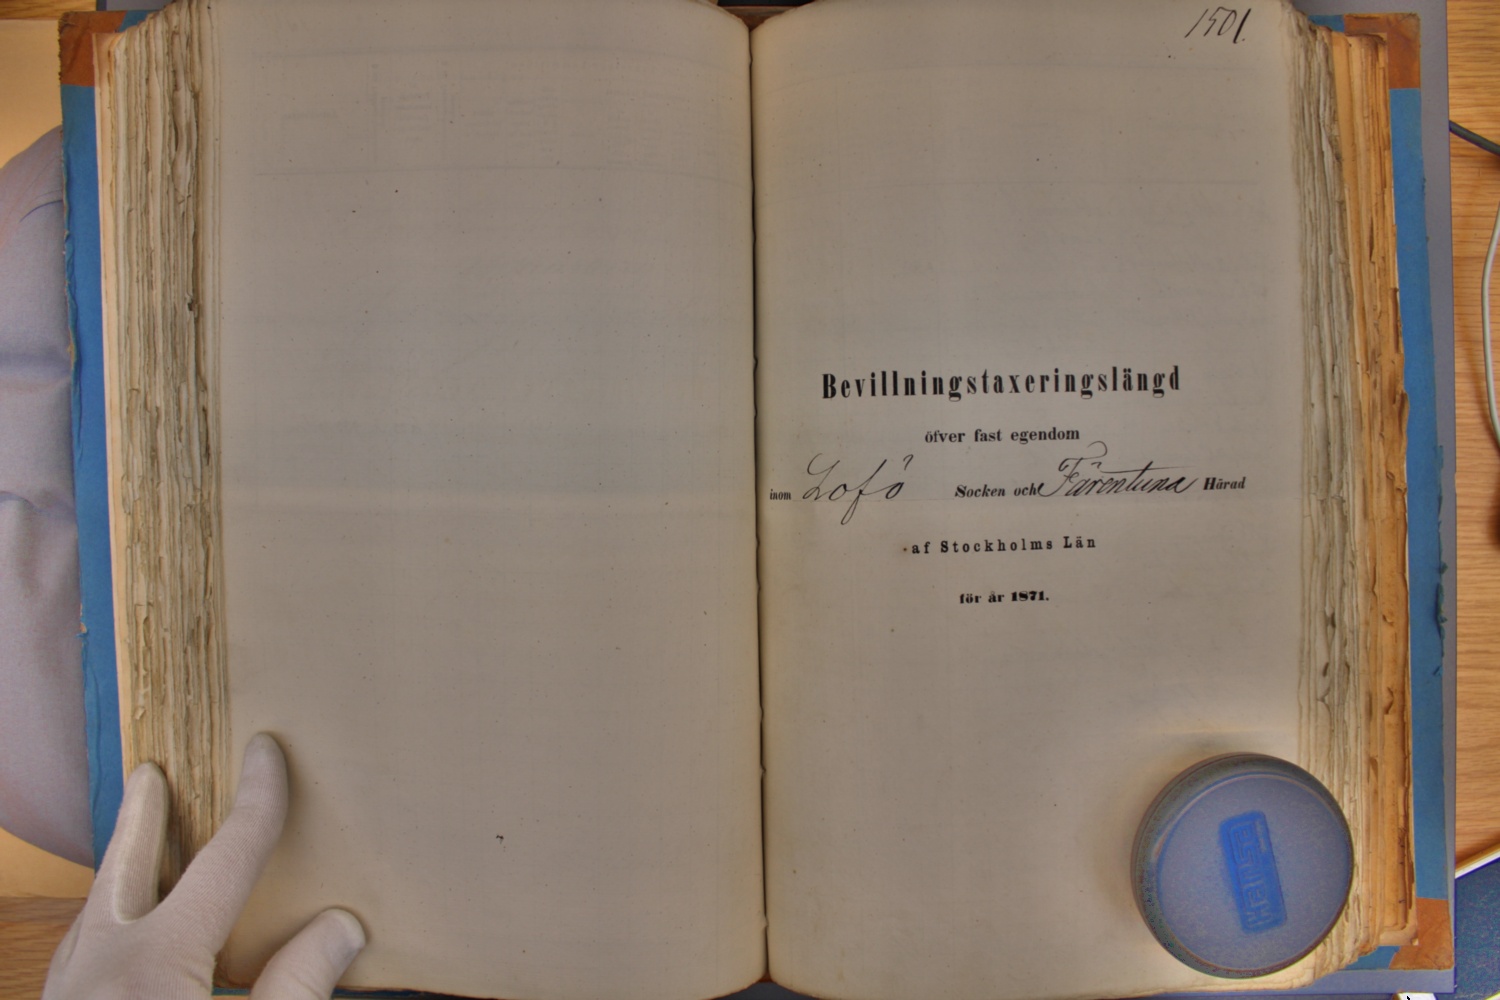 1501.
Bevillningstaxeringslängd
öfver fast egendom
inom Lofö Socken och Färentuna Härad
af Stockholms Län
för år 1871.